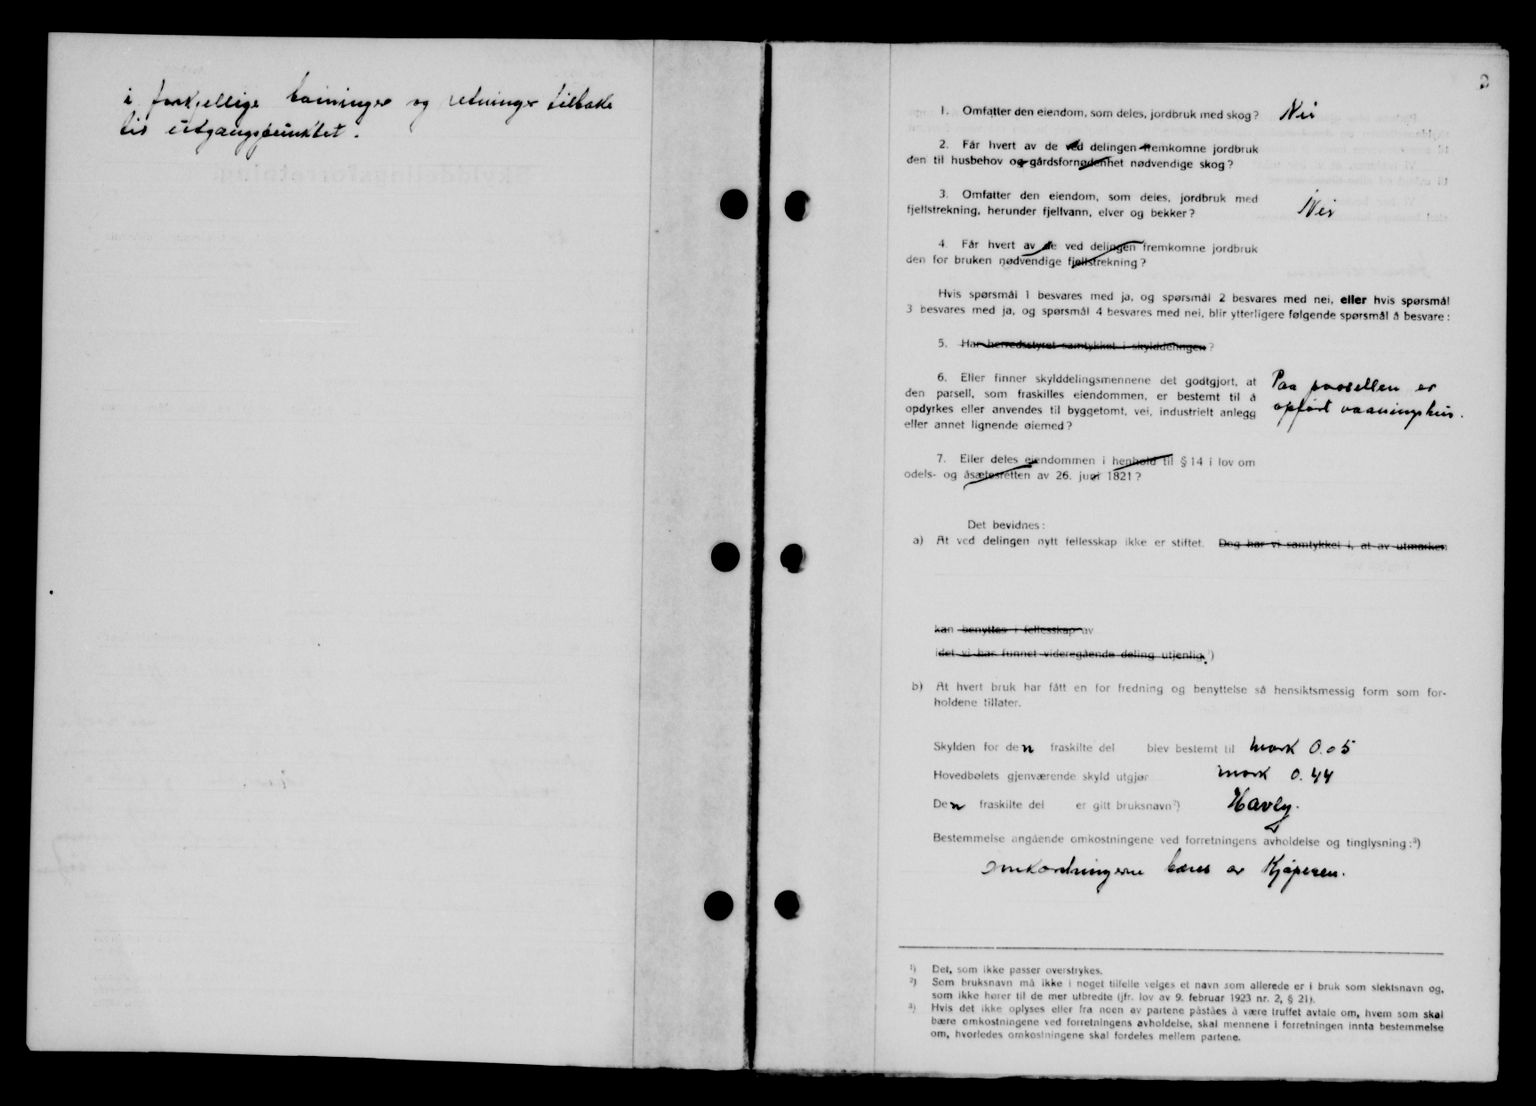 i forskjellige bøininger og retninger tilbake
til utgangspunktet.
1. Omfatter den eiendom, som deles, jordbruk med skog? Nei
2. Får hvert av de ved delingen fremkomne jordbruk
den til husbehov og gårdsfornødenhet nødvendige skog?
3. Omfatter den eiendom, som deles, jordbruk med
fjellstrekning, herunder fjellvann, elver og bekker? Nei
4. Får hvert av de ved delingen fremkomne jordbruk
den for bruken nødvendige fjellstrekning?
Hvis spørsmål 1 besvares med ja, og spørsmål 2 besvares med nei, eller hvis spørsmål
3 besvares med ja, og spørsmål 4 besvares med nei, blir ytterligere følgende spørsmål å besvare:
5. Har herredsstyret samtykket i skylddelingen?
6. Eller finner skylddelingsmennene det godtgjort, at
den parsell, som fraskilles eiendommen, er bestemt til å
opdyrkes eller anvendes til byggetomt, vei, industrielt anlegg
eller annet lignende øiemed?
Paa parsellen er
opført vaaningshus.
7. Eller deles eiendommen i henhold til § 14 i lov om
odels- og åsætesretten av 26. juni 1821?
Det bevidnes:
a) At ved delingen nytt fellesskap ikke er stiftet. Dog har vi samtykket i, at av utmarken
kan benyttes i fellesskap av
idet vi har funnet videregående deling utjenlig.¹)
b) At hvert bruk har fått en for fredning og benyttelse så hensiktsmessig form som for-
holdene tillater.
Skylden for den fraskilte del blev bestemt til mark 0.05
Hovedbølets gjenværende skyld utgjør mark 0.44
Den fraskilte del er gitt bruksnavn²) Havly.
Bestemmelse angående omkostningene ved forretningens avholdelse og tinglysning:³)
Omkostningerne bæres av Kjøperen.
¹) Det, som ikke passer overstrykes.
²) Som bruksnavn må ikke i noget tilfelle velges et navn som allerede er i bruk som slektsnavn og,
som ikke hører til de mer utbredte (jfr. lov av 9. februar 1923 nr. 2, § 21).
³) Hvis det ikke oplyses eller fra noen av partene påståes å være truffet avtale om, hvem som skal
bære omkostningene ved forretningens avholdelse, skal mennene i forretningen innta bestemmelse
om, hvorledes omkostningene skal fordeles mellem partene.